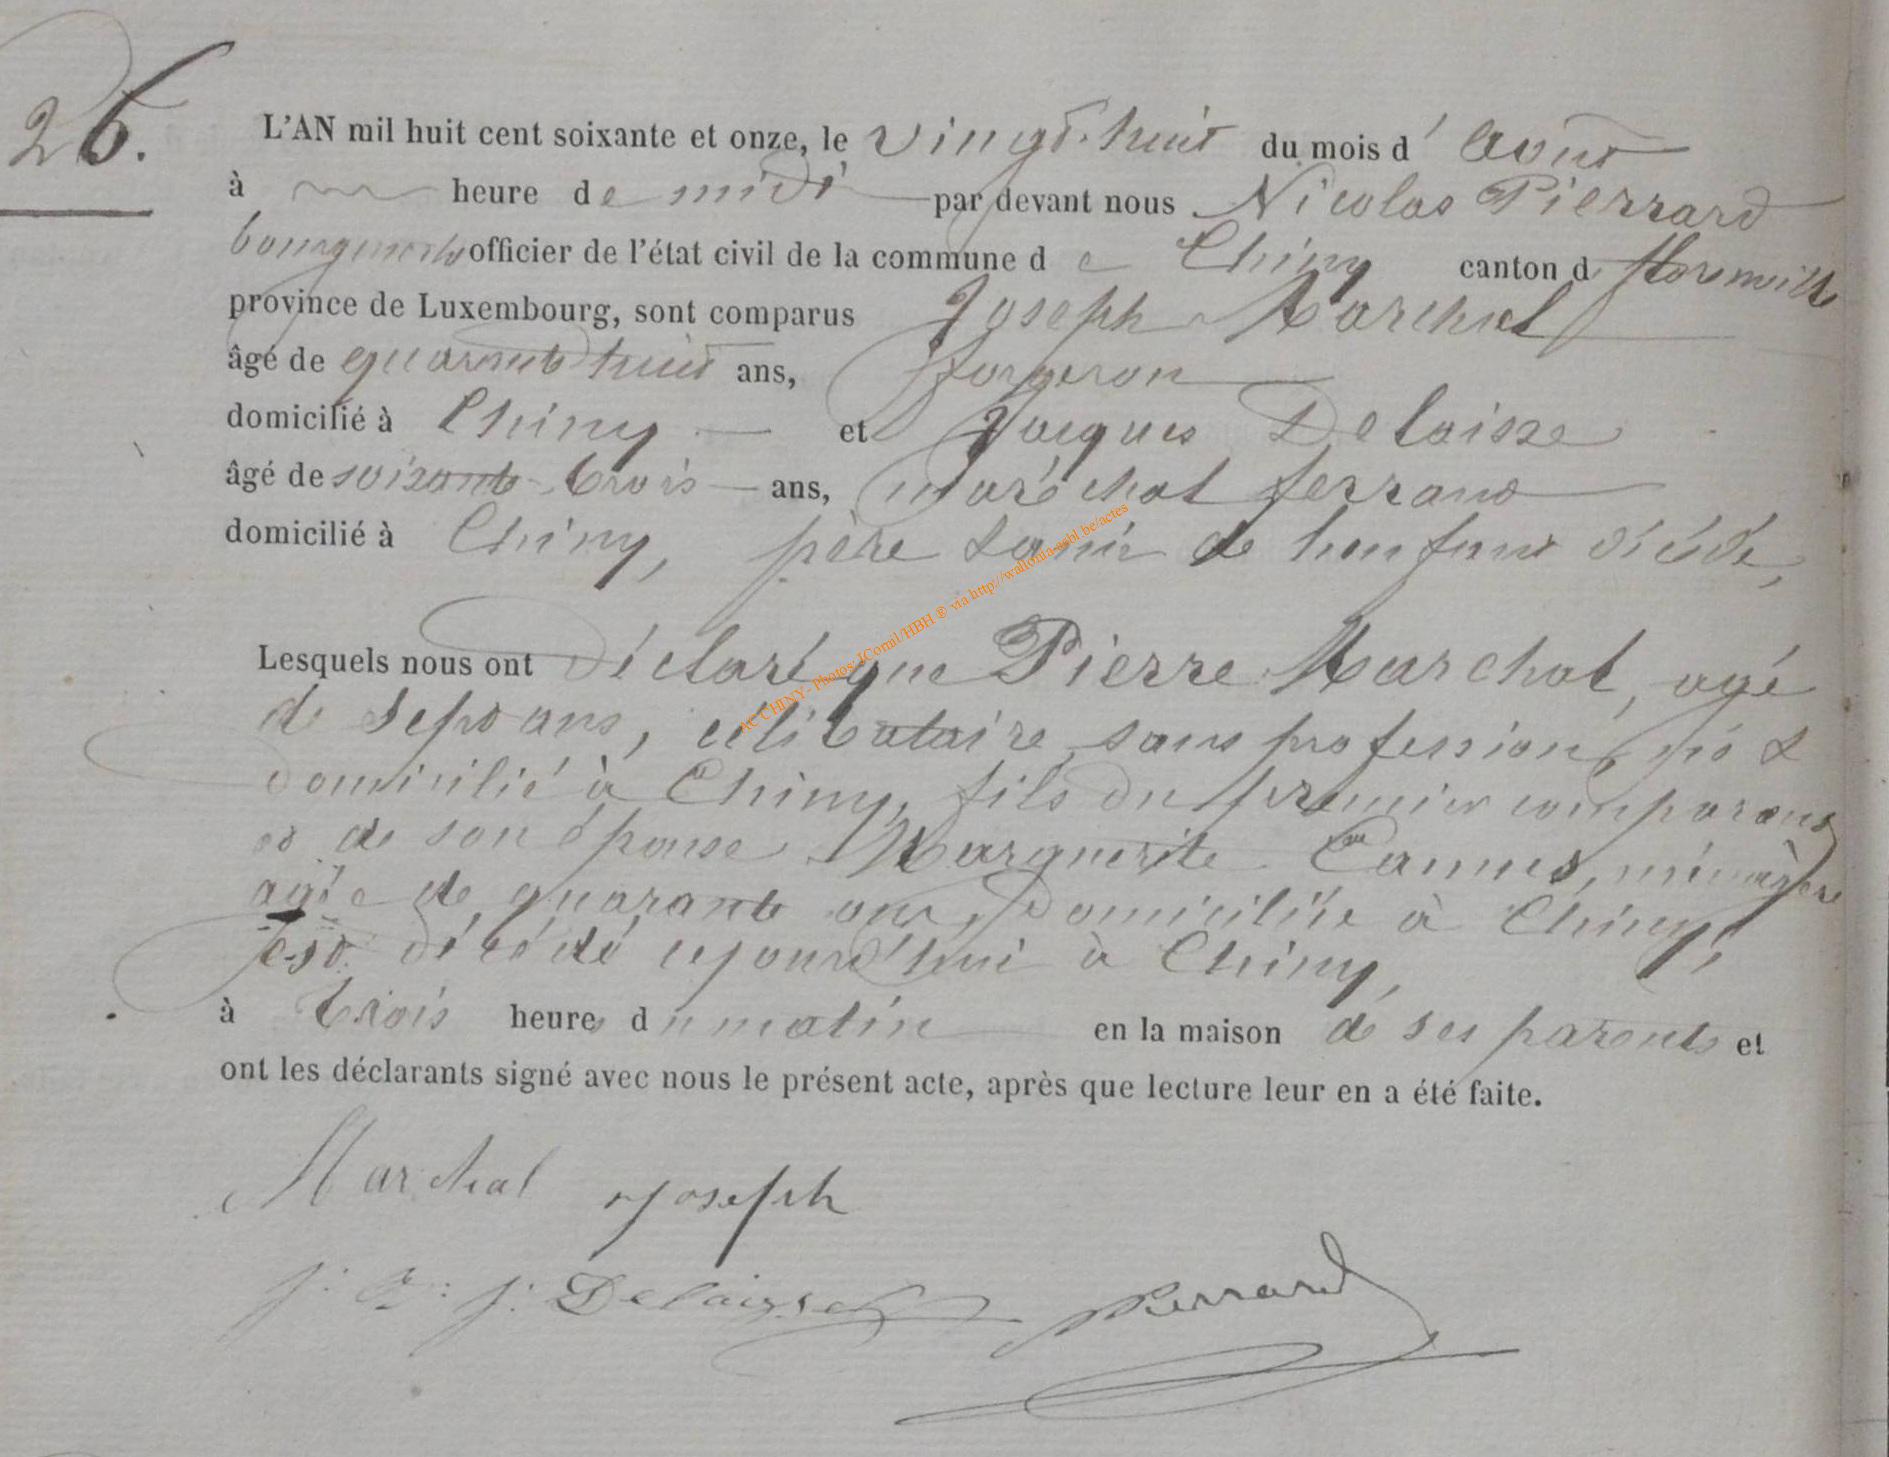 26.
L'AN mil huit cent soixante et onze, le vingt-huit du mois d' Août
à heure de midi par devant nous Nicolas Pierrard
bourgmestre officier de l'état civil de la commune de Chiny canton de florenville
province de Luxembourg, sont comparus Joseph Marchal
âgé de quarante huit ans, forgeron
domicilié à Chiny et Jacques Delaisse
âgé de soixante-trois ans, maréchal ferrant
domicilié à Chiny, père & de l'enfant décédé,
Lesquels nous ont déclaré que Pierre Marchal, agé
de sept ans, célibataire, sans profession, né &
domicilié à Chiny, fils du premier comparant
et de son épouse Marguerite ménagère
agée de quarante ans, domiciliée à Chiny,
est décédé cejourd'hui à Chiny,
à trois heures du matin en la maison de ses parents et
ont les déclarants signé avec nous le présent acte, après que lecture leur en a été faite.
Marchal Joseph
Delaisse Pierrard
AC CHINY - Photos: JComil/HBH ® via http://wallonia-asbl.be/actes